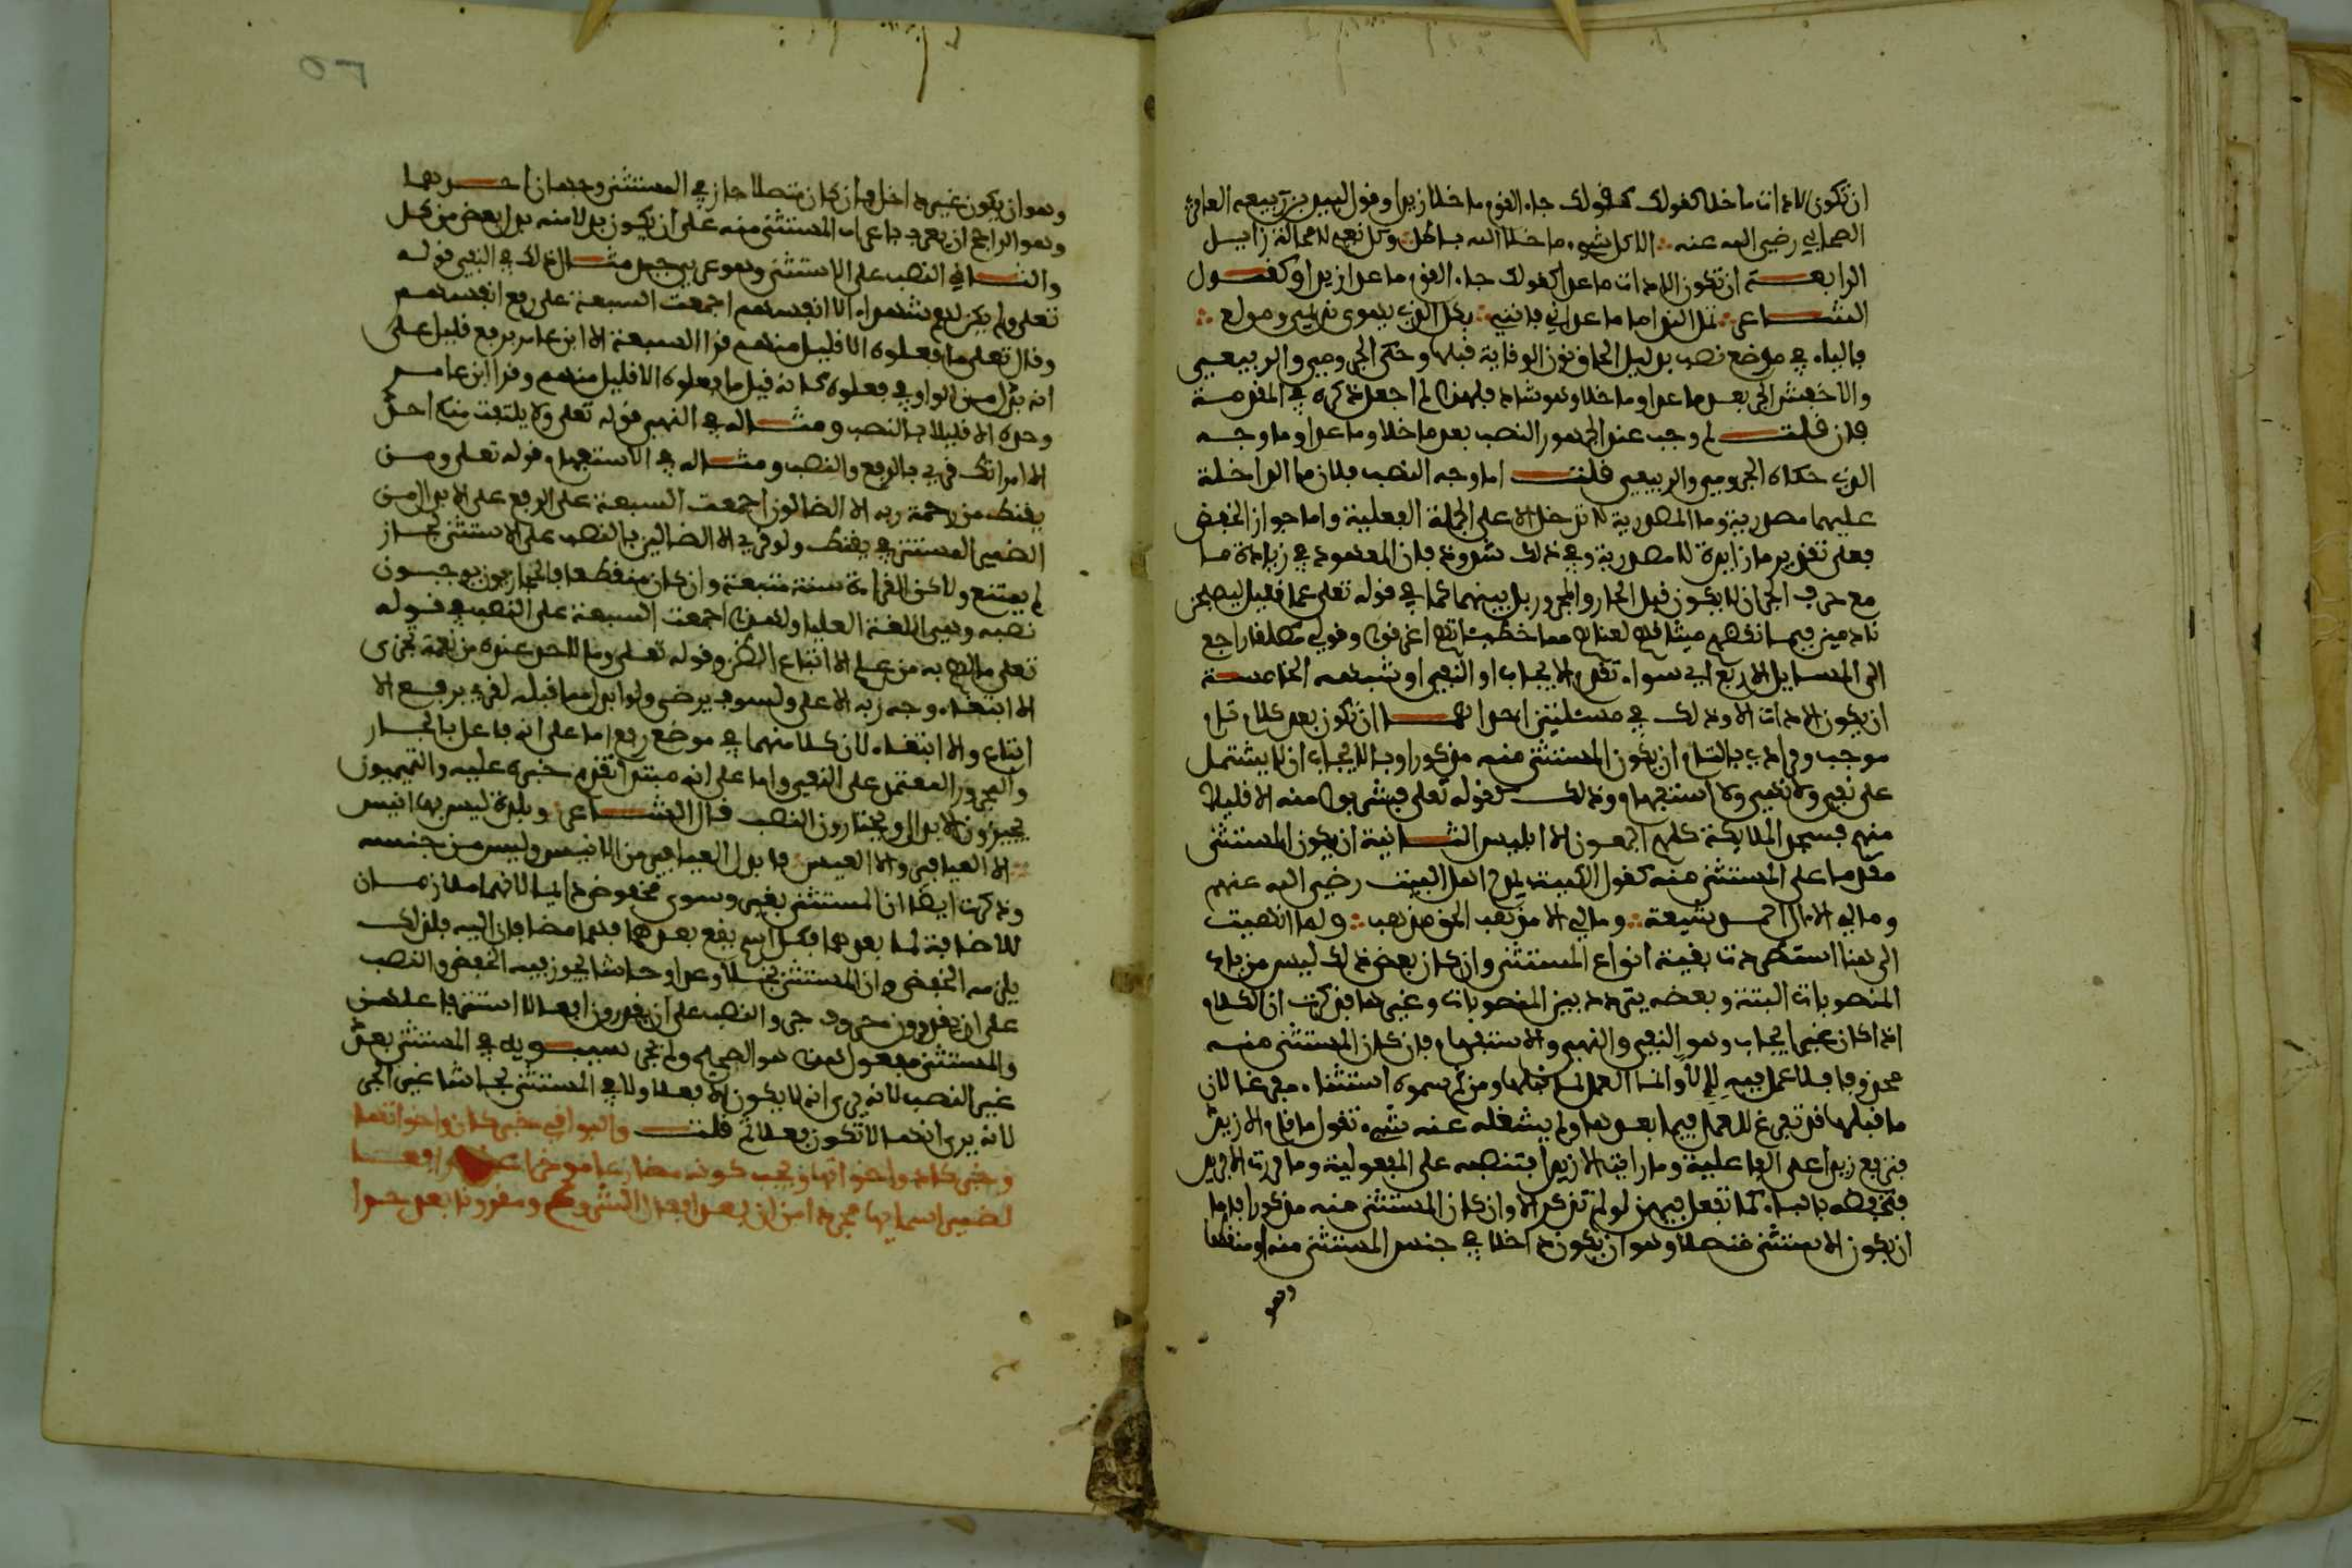 ان تكون الادات ما خلا كقولك كقولك جاء القوم ما خلا زيدا وقول لبيد بن ربيعه العامري
الصحابي رضي الله عنه الا كل شيء ما خلا الله باطل وكل نعيم لا محالة زايل
الرابعة ان تكون الادات ما عدا كقولك جاء القوم ما عدا زيدا وكقول
الشاعر تمل الندامى ما عداني فانني بكل الذي يهوى نديمي مولع
فالياء في موضع نصب بدليل لحاق نون الوقاية قبلها وحكى الجرمي والربعي
والاخفش الجر بعد ما عدا وما خلا وهو شاذ فلهذا لم اجعل ذكره في المقدمة
فان قلت لم وجب عند الجمهور النصب بعد ما خلا وما عدا وما وجه
الذي حكاه الجرمي والربيعي قلت اما وجه النصب فلان ما الداخلة
عليهما مصدرية وما المصدرية لا تدخل الا على الجملة الفعلية واما جواز الخفض
فعلى تقدير ما زايدة لا مصدرية وفي ذلك شذوذ فان المعهود في زيادة ما
مع حرف الجر ان لا يكون قبل الجار والمجرور بل بينهما كما في قوله تعلى عما قليل ليصبحن
نادمين فبما نقضهم ميثاقهم لعناهم مما خطيئاتهم اغرقوا وقولي مطلقا راجع
الى المسايل الاربع اي سواء تقدم الايجاب او النفي او شبهه الخامسة
ان يكون الادات الا وذلك في مسئلتين احداهما ان تكون بعد كلام تام
موجب ومرادي بالتام ان يكون المستثنى منه مذكورا وبالايجاب ان لا يشتمل
على نفي ولا نهي ولا استفهام وذلك كقوله تعلى فشربوا منه الا قليلا
منهم فسجد الملايكة كلهم اجمعون الا ابليس الثانية ان يكون المستثنى
مقدما على المستثنى منه كقول الكميت يمدح اهل البيت رضي الله عنهم
وما لي الا ال احمد شيعة وما لي الا مذهب الحق مذهب ولما انتهيت
الى هنا استطردت بقية انواع المستثنى وان كان بعض ذلك ليس من باب
المنصوبات البتة وبعضه يتردد بين المنصوبات وغيرها فذكرت ان الكلام
اذا كان غير ايجاب وهو النفي والنهي والاستفهام فان كان المستثنى منه
محذوفا فلا عمل فيه لالا وانما العمل لما قبلها ومن ثم سموه استثناء مفرغا لان
ما قبلها قد تفرغ للعمل فيما بعدها ولم يشغله عنه شيء تقول ما قام الا زيد
فترفع زيدا على الفاعلية وما رايت الا زيدا فتنصبه على المفعولية وما مررت الا بزيد
فتخفضه بالباء كما تفعل فيهن لو لم تذكر الا وان كان المستثنى منه مذكورا فاما
ان يكون الاستثنى متصلا وهو ان يكون داخلا في جنس المستثنى منه او منقطعا
وهو
وهو ان يكون غير داخل فان كان متصلا جاز في المستثنى وجهان احدهما
وهو الراجح ان يعرب باعراب المستثنى منه على ان يكون بدلا منه بدل بعض من كل
والثاني النصب على الاستثنى وهو عربي جيد مثال ذلك في النفي قوله
تعلى ولم يكن لهم شهداء الا انفسهم اجمعت السبعة على رفع انفسهم
وقال تعلى ما فعلوه الا قليل منهم قرا السبعة الا ابن عامر برفع قليل على
انه بدل من الواو في فعلوه كانه قيل ما فعلوه الا قليل منهم وقرا ابن عامر
وحده الا قليلا بالنصب ومثاله في النهي قوله تعلى ولا يلتفت منكم احد
الا امراتك قري بالرفع والنصب ومثاله في الاستفهام قوله تعلى ومن
يقنط من رحمة ربه الا الضالون اجمعت السبعة على الرفع على الابدال من
الضمير المستتر في يقنط ولو قري الا الضالين بالنصب على الاستثنى لجاز
لم يمتنع ولاكن القراءة سنة متبعة وان كان منقطعا فالحجازيون يوجبون
نصبه وهي اللغة العليا ولهذا اجمعت السبعة على النصب في قوله
تعلى ما لهم به من علم الا اتباع الظن وقوله تعلى وما لاحد عنده من نعمة تجزى
الا ابتغاء وجه ربه الاعلى ولسوف يرضى ولو ابدل مما قبله لقري برفع الا
اتباع والا ابتغاء لان كلا منهما في موضع رفع اما على انه فاعل بالجار
والمجرور المعتمد على النفي واما على انه مبتدا تقدم خبره عليه والتميميون
يجيزون الابدال ويختارون النصب قال الشاعر وبلدة ليس بها انيس
الا اليعافير والا العيس فابدل اليعافير من الانيس وليس من جنسه
وذكرت ايضا ان المستثنى بغير وسوى مخفوض دايما لانهما ملازمان
للاضافة لما بعدهما فكل اسم يقع بعدهما فهما مضافان اليه فلذلك
يلزمه الخفض وان المستثنى بخلا وعدا وحاشا يجوز فيه الخفض والنصب
على ان يقدرون حروف جر والنصب على ان يقدرون افعالا استتر فاعلهن
والمستثنى مفعول هذا هو الصحيح ولم يجز سيبويه في المستثنى بعدا
غير النصب لانه يرى انه لا يكون الا فعلا ولا في المستثنى بحاشا غير الجر
لانه يرى انها لا تكون فعلا ثم قلت والبواقي خبر كان واخواتها
وخبر كاد واخواتها ويجب كونه مضارعا موخرا عنها رافعا
لضمير اسمايها مجردا من ان بعد افعال الشروع ومقرونا بعد حرا